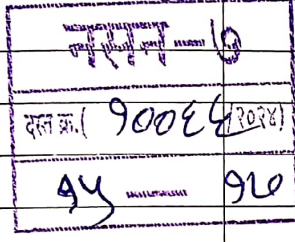 नसन-७
दस्त क्र.( १००६६/२०२४)
१५ —— १७